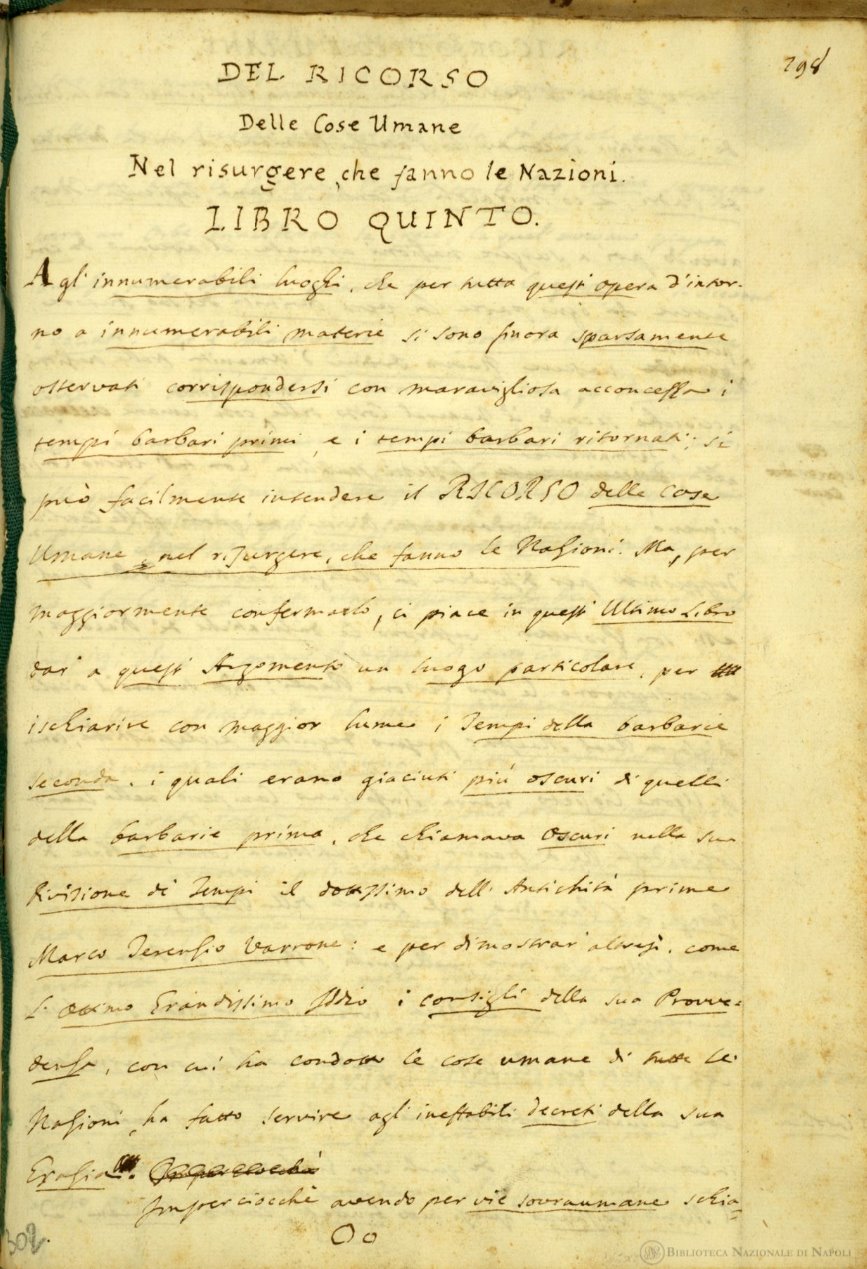 298
DEL RICORSO
Delle Cose Umane
Nel risurgere, che fanno le Nazioni.
LIBRO QUINTO.
Agl' innumerabili luoghi, che per tutta quest' opera d'intor-
no a innumerabili materie si sono finora sparsamente
osservati corrispondersi con maravigliosa acconcezza i
tempi barbari primi, e i tempi barbari ritornati; si
può facilmente intendere il RICORSO delle Cose
Umane, nel risurgere, che fanno le Nazioni. Ma, per
maggiormente confermarlo, ci piace in quest' Ultimo Libro
dar' a quest' Argomento un luogo particolare, per
ischiarire con maggior lume i Tempi della barbarie
seconda, i quali erano giaciuti più oscuri di quelli
della barbarie prima, che chiamava oscuri nella sua
divisione de' Tempi il dottissimo dell' Antichità prime
Marco Terenzio Varrone: e per dimostrar' altresì, come
l' Ottimo Grandissimo Iddio i consigli della sua Provve-
denza, con cui ha condotto le cose umane di tutte le
Nazioni, ha fatto servire agl' ineffabili decreti della sua
Grazia.
Imperciocchè avendo per vie sovraumane schia-
Oo
302.
BIBLIOTECA NAZIONALE DI NAPOLI